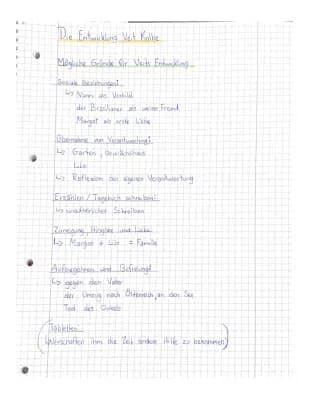 Die Entwicklung Veit Kolbe
Mögliche Gründe für Veits Entwicklung
Soziale Beziehungen:
↳ Nanni als Vorbild
der Brasilianer als weiser Freund
Margot als erste Liebe
Übernahme von Verantwortung:
↳ Garten, Gewächshaus
Lilo
↳ Reflexion der eigenen Verantwortung
Erzählen / Tagebuch schreiben:
↳ unaufhörliches Schreiben
Zuneigung, Hingabe und Liebe:
↳ Margot + Lilo = Familie
Aufbegehren und Befreiung:
↳ gegen den Vater
der Umzug nach Österreich, an den See
Tod des Onkels
(Tabletten:
↳ Verschaffen ihm die Zeit andere Hilfe zu bekommen)